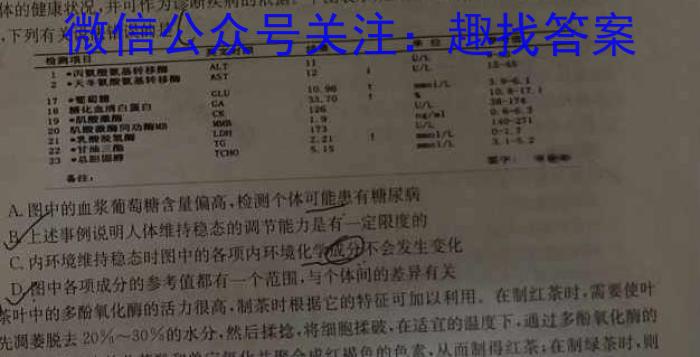 体的健康状况,并可作为诊断疾病的依据。
微信公众号关注：趣找答案
,下列有关
检测项目 单位
1 *丙氨酸氨基转移酶 ALT 11 U/L 15-65
2 *天冬氨酸氨基转移酶 AST 12 ↓ U/L
17 *葡萄糖 GLU 10.96 ↑ mmol/L 3.9-6.1
18 糖化血清白蛋白 GA 33.70 ↑ % 10.8-17.1
19 *肌酸激酶 CK 126 U/L 38-174
20 肌酸激酶同功酶MB MMB 1.9 ng/ml
21 *乳酸脱氢酶 LDH 173 U/L
22 *甘油三酯 TG 2.21 ↑ mmol/L
23 *总胆固醇 TCHO 5.15 mmol/L 3.1-5.2
备注:
A.图中的血浆葡萄糖含量偏高,检测个体可能患有糖尿病
B.上述事例说明人体维持稳态的调节能力是有一定限度的
C.内环境维持稳态时图中的各项内环境化学成分不会发生变化
D.图中各项成分的参考值都有一个范围,与个体间的差异有关
茶叶中的多酚氧化酶的活力很高,制茶时根据它的特征可加以利用。在制红茶时,需要使叶
先凋萎脱去20%～30%的水分,然后揉捻,将细胞揉破,在适宜的温度下,通过多酚氧化酶的
氧化并聚合成红褐色的色素,从而制得红茶;在制绿茶时,则